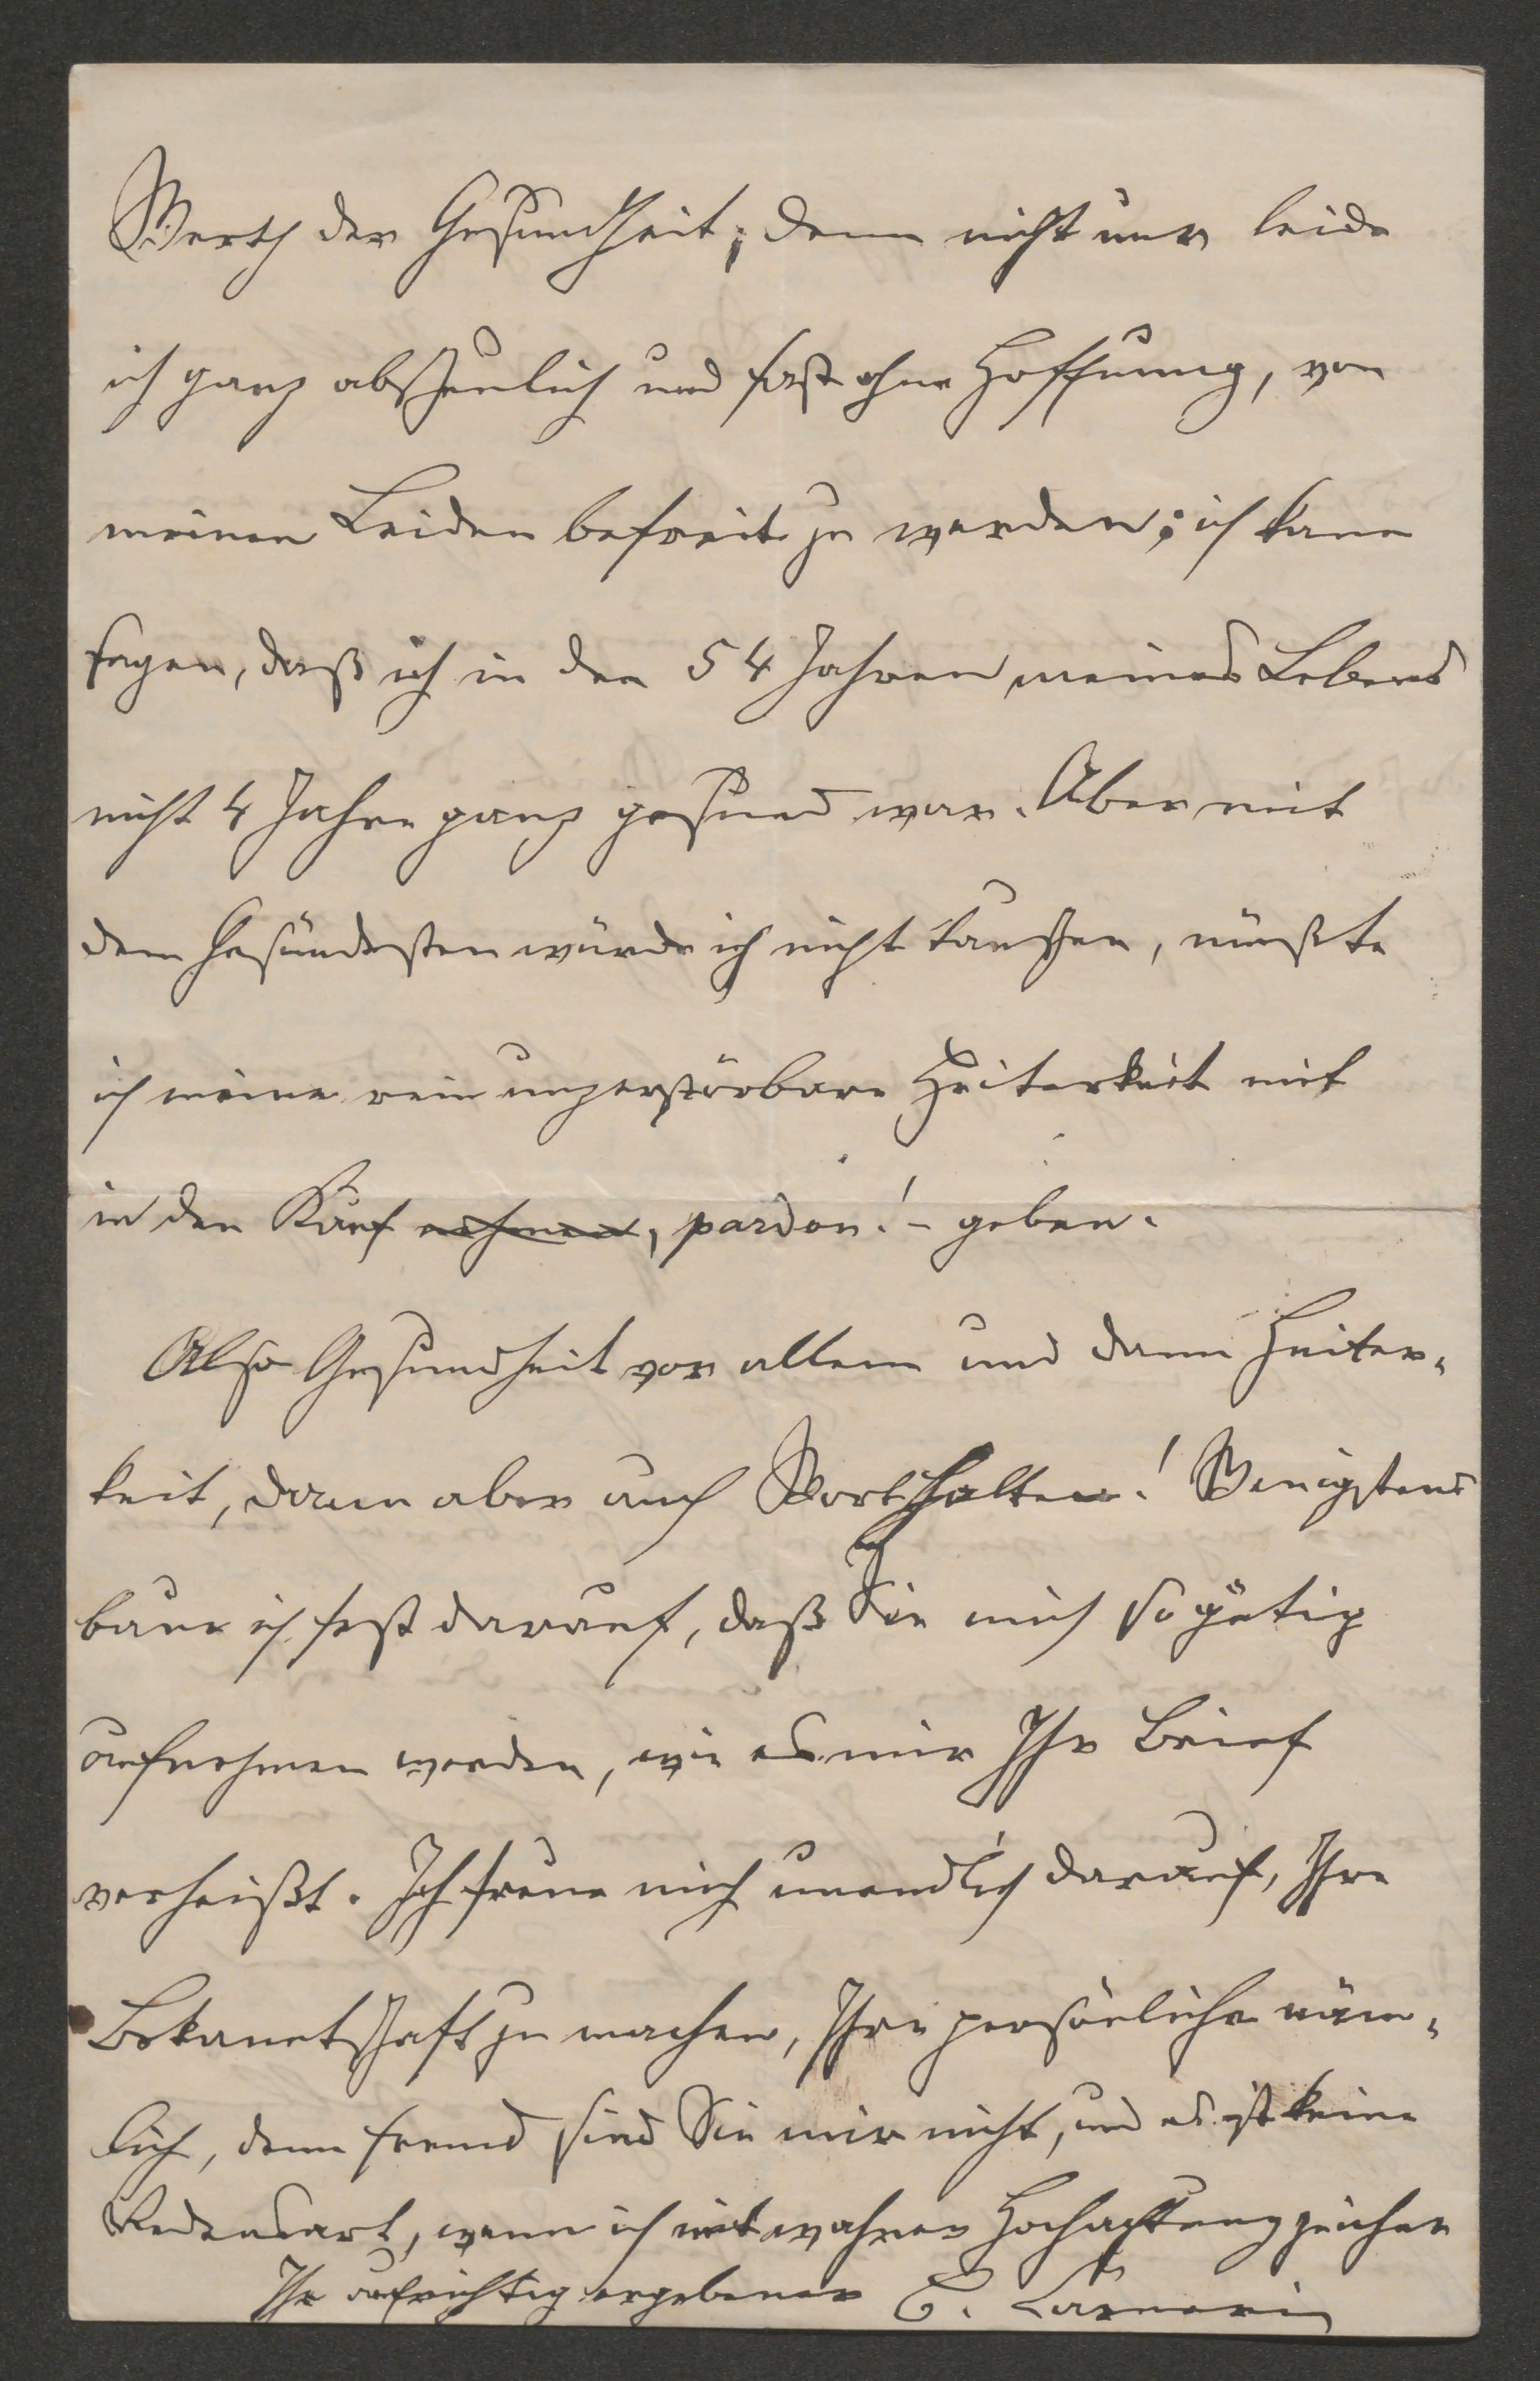 Werth der Gesundheit; denn nicht nur leide
ich ganz abscheulich und fast ohne Hoffnung, von
meinen Leiden befreit zu werden; ich kann
sagen, daß ich in den 54 Jahren meines Lebens
nicht 4 Jahre ganz gesund war. Aber mit
dem Gesündesten würde ich nicht tauschen, müßte
ich meine rein unzerstörbare Heiterkeit mit
in den Kauf nehmen, pardon! - geben.
Also Gesundheit vor allem und dann Heiter-
keit, dann aber auch Wort halten! Wenigstens
baue ich fest darauf, daß Sie mich so gütig
aufnehmen werden, wie es mir Ihr Brief
verheißt. Ich freue mich unendlich darauf, Ihre
Bekanntschaft zu machen, Ihre persönliche näm-
lich, denn fremd sind Sie mir nicht, und es ist keine
Redensart, wenn ich mit wahrer Hochachtung zeichne
Ihr aufrichtig ergebener B. Carneri